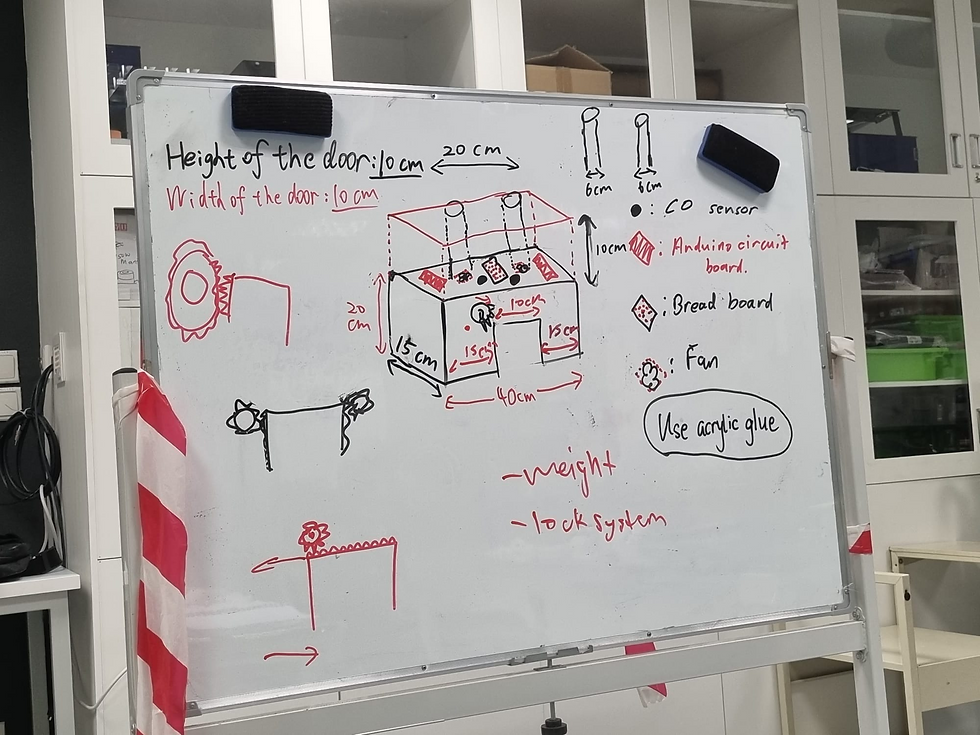 Height of the door: 10 cm
20 cm
Width of the door: 10 cm
6cm
6cm
: CO sensor
10cm
: Arduino circuit
board.
20
cm
10cm
: Bread board
15cm
15cm
15cm
40cm
: Fan
Use acrylic glue
- weight
- lock system